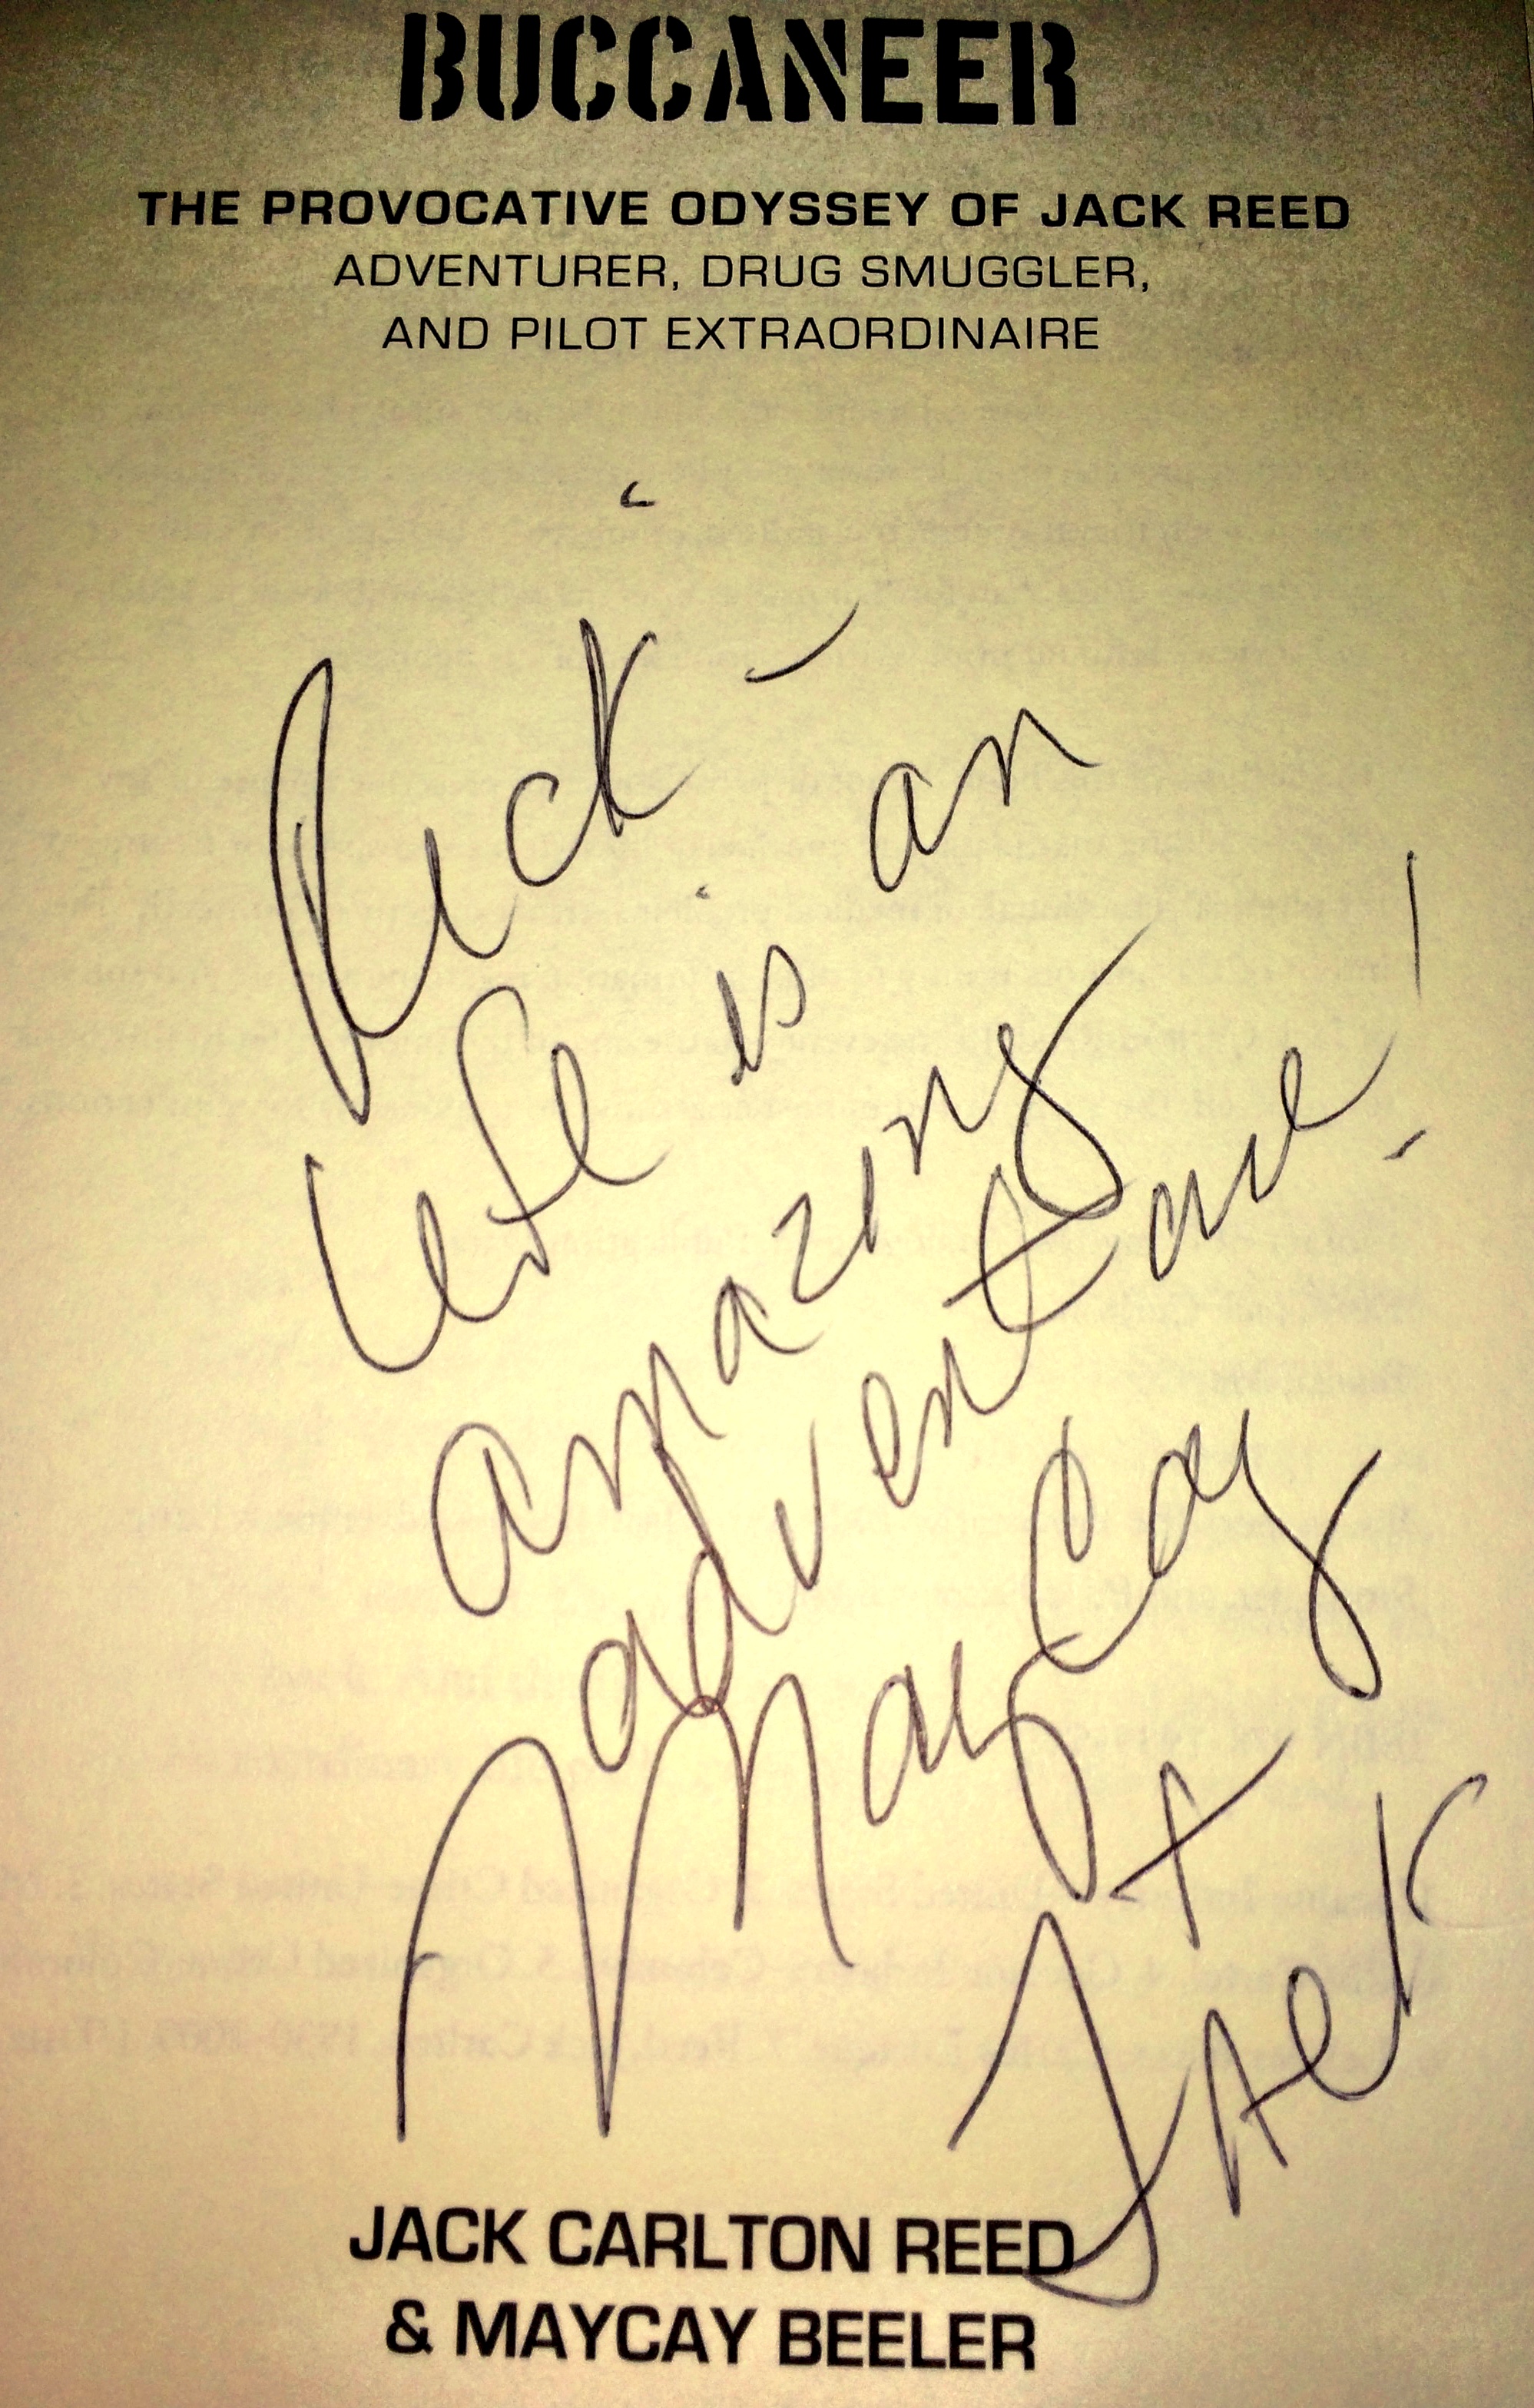 BUCCANEER
THE PROVOCATIVE ODYSSEY OF JACK REED
ADVENTURER, DRUG SMUGGLER,
AND PILOT EXTRAORDINAIRE
Rick -
Life is an
amazing
adventure!
MayCay
+
JACK
JACK CARLTON REED
& MAYCAY BEELER